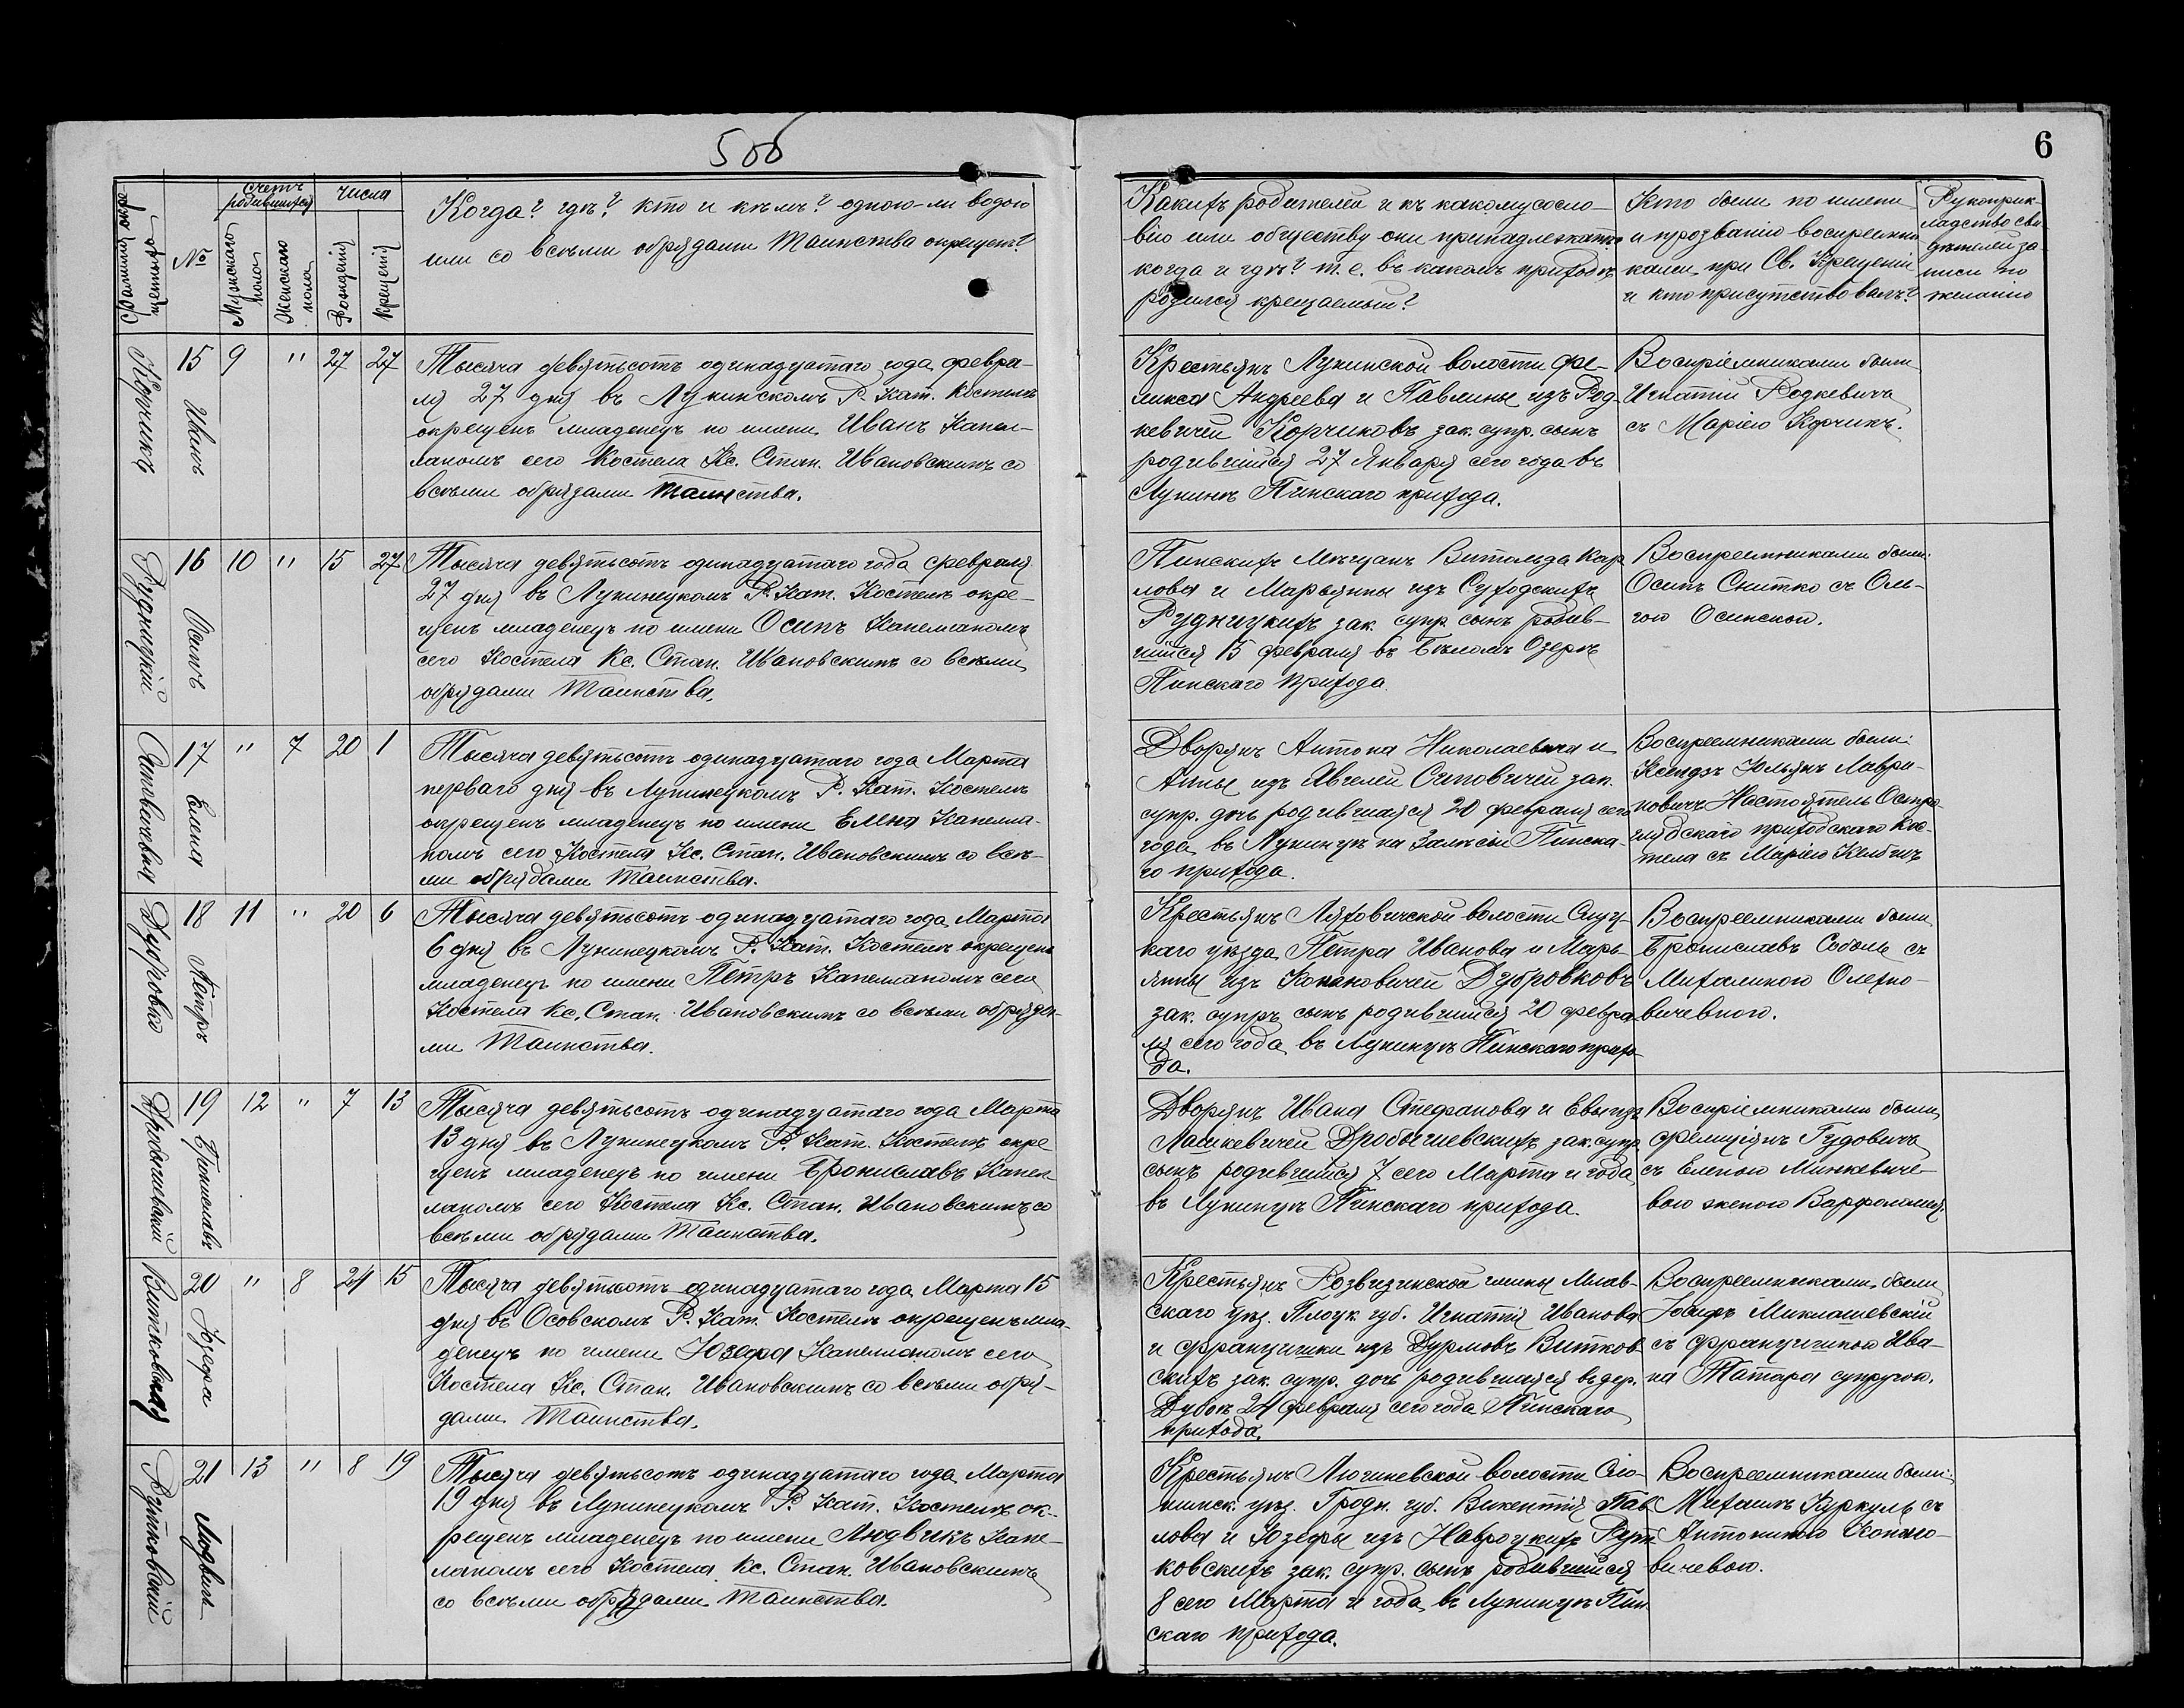 500
6
Фамилія окре-
щеннаго
№
Счетъ
родившихся
Мужскаго
пола
Женскаго
пола
числа
Рожденія
Крещенія
Когда? гдѣ? кто и кѣмъ? одною-ли водою
или со всѣми обрядами Таинства окрещенъ?
Какихъ родителей и къ какому сосло-
вію или обществу они принадлежатъ
когда и гдѣ? т.е. въ какомъ приходѣ
родился крещаемый?
Кто были по имени
и прозванію воспреемни-
ками при Св. Крещеніи
и кто присутствовалъ?
Рукоприк-
ладство сви-
дѣтелей за-
писи по
желанію
Корчикъ
15 9 " 27 27
Иванъ
Тысяча девятьсотъ одинадцатаго года февра-
ля 27 дня въ Лунинскомъ Р. Кат. Костелѣ
окрещенъ младенецъ по имени Иванъ Капел-
ланомъ сего Костела Кс. Стан. Ивановскимъ со
всѣми обрядами Таинства.
Крестьянъ Лунинской волости Фе-
ликса Андреева и Павлины изъ Род-
кевичей Корчиковъ зак. супр. сынъ
родившійся 27 Января сего года въ
Лунинѣ Пинскаго прихода.
Воспріемниками были
Игнатій Родкевичъ
съ Маріею Корчикъ.
Рудницкій
16 10 " 15 27
Осипъ
Тысяча девятьсотъ одинадцатаго года февраля
27 дня въ Лунинецкомъ Р. Кат. Костелѣ окре-
щенъ младенецъ по имени Осипъ Капелланомъ
сего Костела Кс. Стан. Ивановскимъ со всѣми
обрядами Таинства.
Пинскихъ Мѣщанъ Витольда Кар-
лова и Марьянны изъ Суходскихъ
Рудницкихъ зак. супр. сынъ родив-
шійся 15 февраля въ Бѣломъ Озерѣ
Пинскаго прихода.
Воспреемниками были:
Осипъ Снитко съ Оль-
гою Осинской.
17 " 7 20 1
Елена
Тысяча девятьсотъ одинадцатаго года Марта
перваго дня въ Лунинецкомъ Р. Кат. Костелѣ
окрещенъ младенецъ по имени Елена Капелла-
номъ сего Костела Кс. Стан. Ивановскимъ со всѣ-
ми обрядами Таинства.
Дворянъ Антона Николаевича и
Анны изъ зак.
супр. дочь родившаяся 20 февраля сего
года въ Лунинцѣ на Залѣсьи Пинска-
го прихода.
Воспреемниками были:
Ксендзъ Юльянъ Лаври-
новичъ Настоятель Остро-
глядскаго приходскаго Кос-
тела съ Маріею
Дубровко
18 11 " 20 6
Петръ
Тысяча девятьсотъ одинадцатаго года Марта
6 дня въ Лунинецкомъ Р. Кат. Костелѣ окрещенъ
младенецъ по имени Петръ Капелланомъ сего
Костела Кс. Стан. Ивановскимъ со всѣми обряда-
ми Таинства.
Крестьянъ Ляховичской волости Слуц-
каго уѣзда Петра Иванова и Марь-
янны изъ Дубровковъ
зак. супр. сынъ родившійся 20 февра-
ля сего года въ Лунинцѣ Пинскаго прихо-
да.
Воспреемниками были
Брониславъ Соболь съ
Михалиною Олехно-
вичевною.
Дробышевскій
19 12 " 7 13
Брониславъ
Тысяча девятьсотъ одинадцатаго года Марта
13 дня въ Лунинецкомъ Р. Кат. Костелѣ окре-
щенъ младенецъ по имени Брониславъ Капел-
ланомъ сего Костела Кс. Стан. Ивановскимъ со
всѣми обрядами Таинства.
Дворянъ Ивана Стефанова и Евы изъ
Лашкевичей Дробышевскихъ зак. супр.
сынъ родившійся 7 сего Марта и года
въ Лунинцѣ Пинскаго прихода.
Воспріемниками были
Фелиціянъ Гудовичъ
съ Еленою Минкевиче-
вою женою Варфоломея.
Витковская
20 " 8 24 15
Юзефа
Тысяча девятьсотъ одинадцатаго года Марта 15
дня въ Осовскомъ Р. Кат. Костелѣ окрещенъ мла-
денецъ по имени Юзефа Капелланомъ сего
Костела Кс. Стан. Ивановскимъ со всѣми обря-
дами Таинства.
Крестьянъ гмины Млав-
скаго уѣз. Плоцк. губ. Игнатія Иванова
и Францишки изъ Дурмовъ Витков-
скихъ зак. супр. дочь родившаяся въ дер.
24 февраля сего года Пинскаго
прихода.
Воспреемниками были
Іосифъ Миклашевскій
съ Францишкой Ива-
на Татара супругой.
Рутковскій
21 13 " 8 19
Людвигъ
Тысяча девятьсотъ одинадцатаго года Марта
19 дня въ Лунинецкомъ Р. Кат. Костелѣ ок-
рещенъ младенецъ по имени Людвикъ Капе-
ланомъ сего Костела Кс. Стан. Ивановскимъ
со всѣми обрядами Таинства.
Крестьянъ волости Сло-
нимск. уѣз. Гродн. губ. Викентія Пав-
лова и Юзефы изъ Навроцкихъ Рут-
ковскихъ зак. супр. сынъ родившійся
8 сего Марта и года въ Лунинцѣ Пин-
скаго прихода.
Воспреемниками были:
Михаилъ Куркуль съ
Антониною
вичевою.